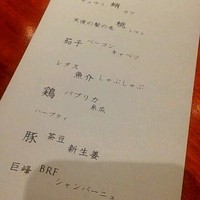 蛸
桃 トマト
天使の髪の毛
茄子 ベーコン
キャベツ
レタス
魚介 しゃぶしゃぶ
鶏 パプリカ
糸瓜
ハーブティ
豚 茶豆
新生姜
巨峰 BRF
シャンパーニュ